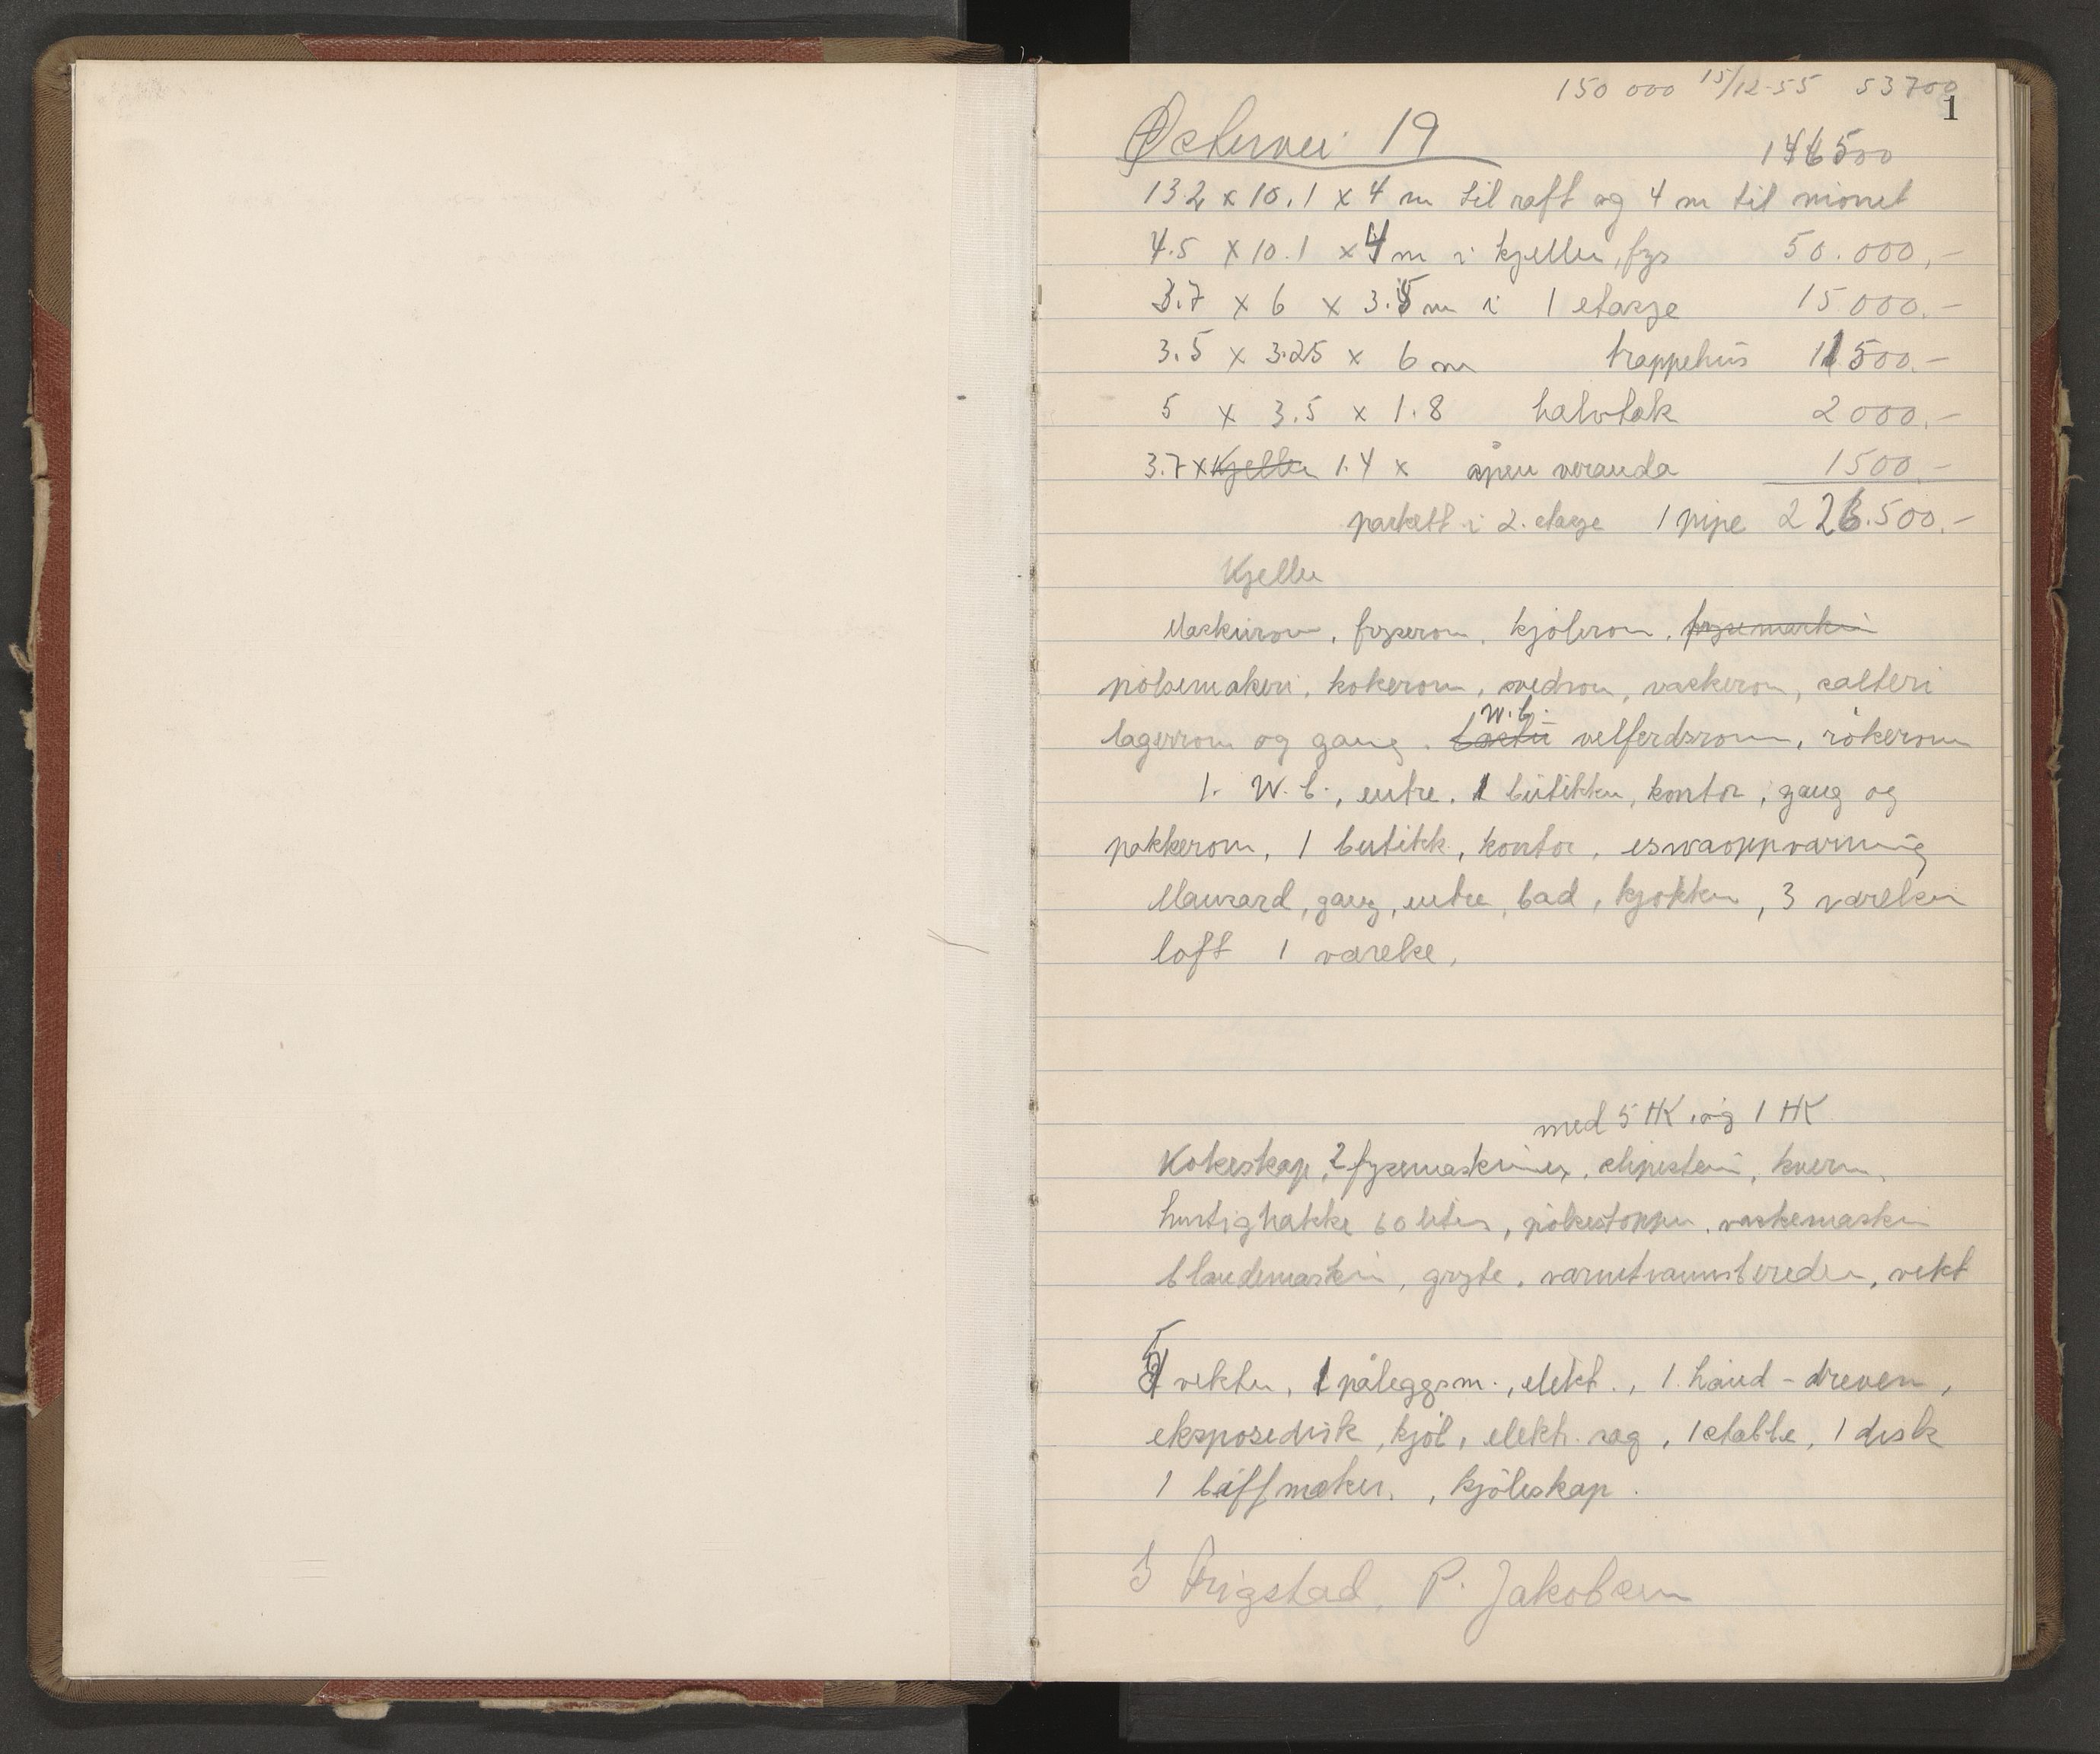 150 000 15/12-55 53700
1
Østervei 19 146500
13.2 x 10.1 x 4 m til raft og 4 m til mønet
4.5 x 10.1 x 4 m i kjeller, frys 50.000,-
3.7 x 6 x 3.5 m i 1 etasje 15000.-
3.5 x 3.25 x 6 m trappehus 11500.-
5 x 3.5 x 1.8 halvtak 2000.-
3.7 x Kjeller 1.4 x åpen veranda 1500.-
parkett i 2. etasje 1 pipe 226.500.-
Kjeller
Maskinrom, fryserom, kjølerom, frysemaskin
pølsemakeri, kokerom, svedrom, vaskerom, salteri
w.c.
lagerrom og gang. velferdsrom, røkerom
1. W.C., entre, 1 butikker, kontor, gang og
pakkerom, 1 butikk, kontor, eswaoppvarming
Mansard, gang, entre, bad, kjøkken, 3 værelser
loft 1 værelse,
med 5 HK og 1 HK
Kokeskap, 2 frysemaskiner, slipestein, kvern,
hurtighakke 60 liter, pølsestopper, vaskemaskin
blandemaskin, gryte, varmtvannsbereder, vekt
5 vekter, 1 påleggsm., elekt., 1 hånd-dreven,
eksposedisk, kjøl, elektr. sag, 1 stabbe, 1 disk
1 biffmøker, kjøleskap.
S Frigstad, P. Jakobsen